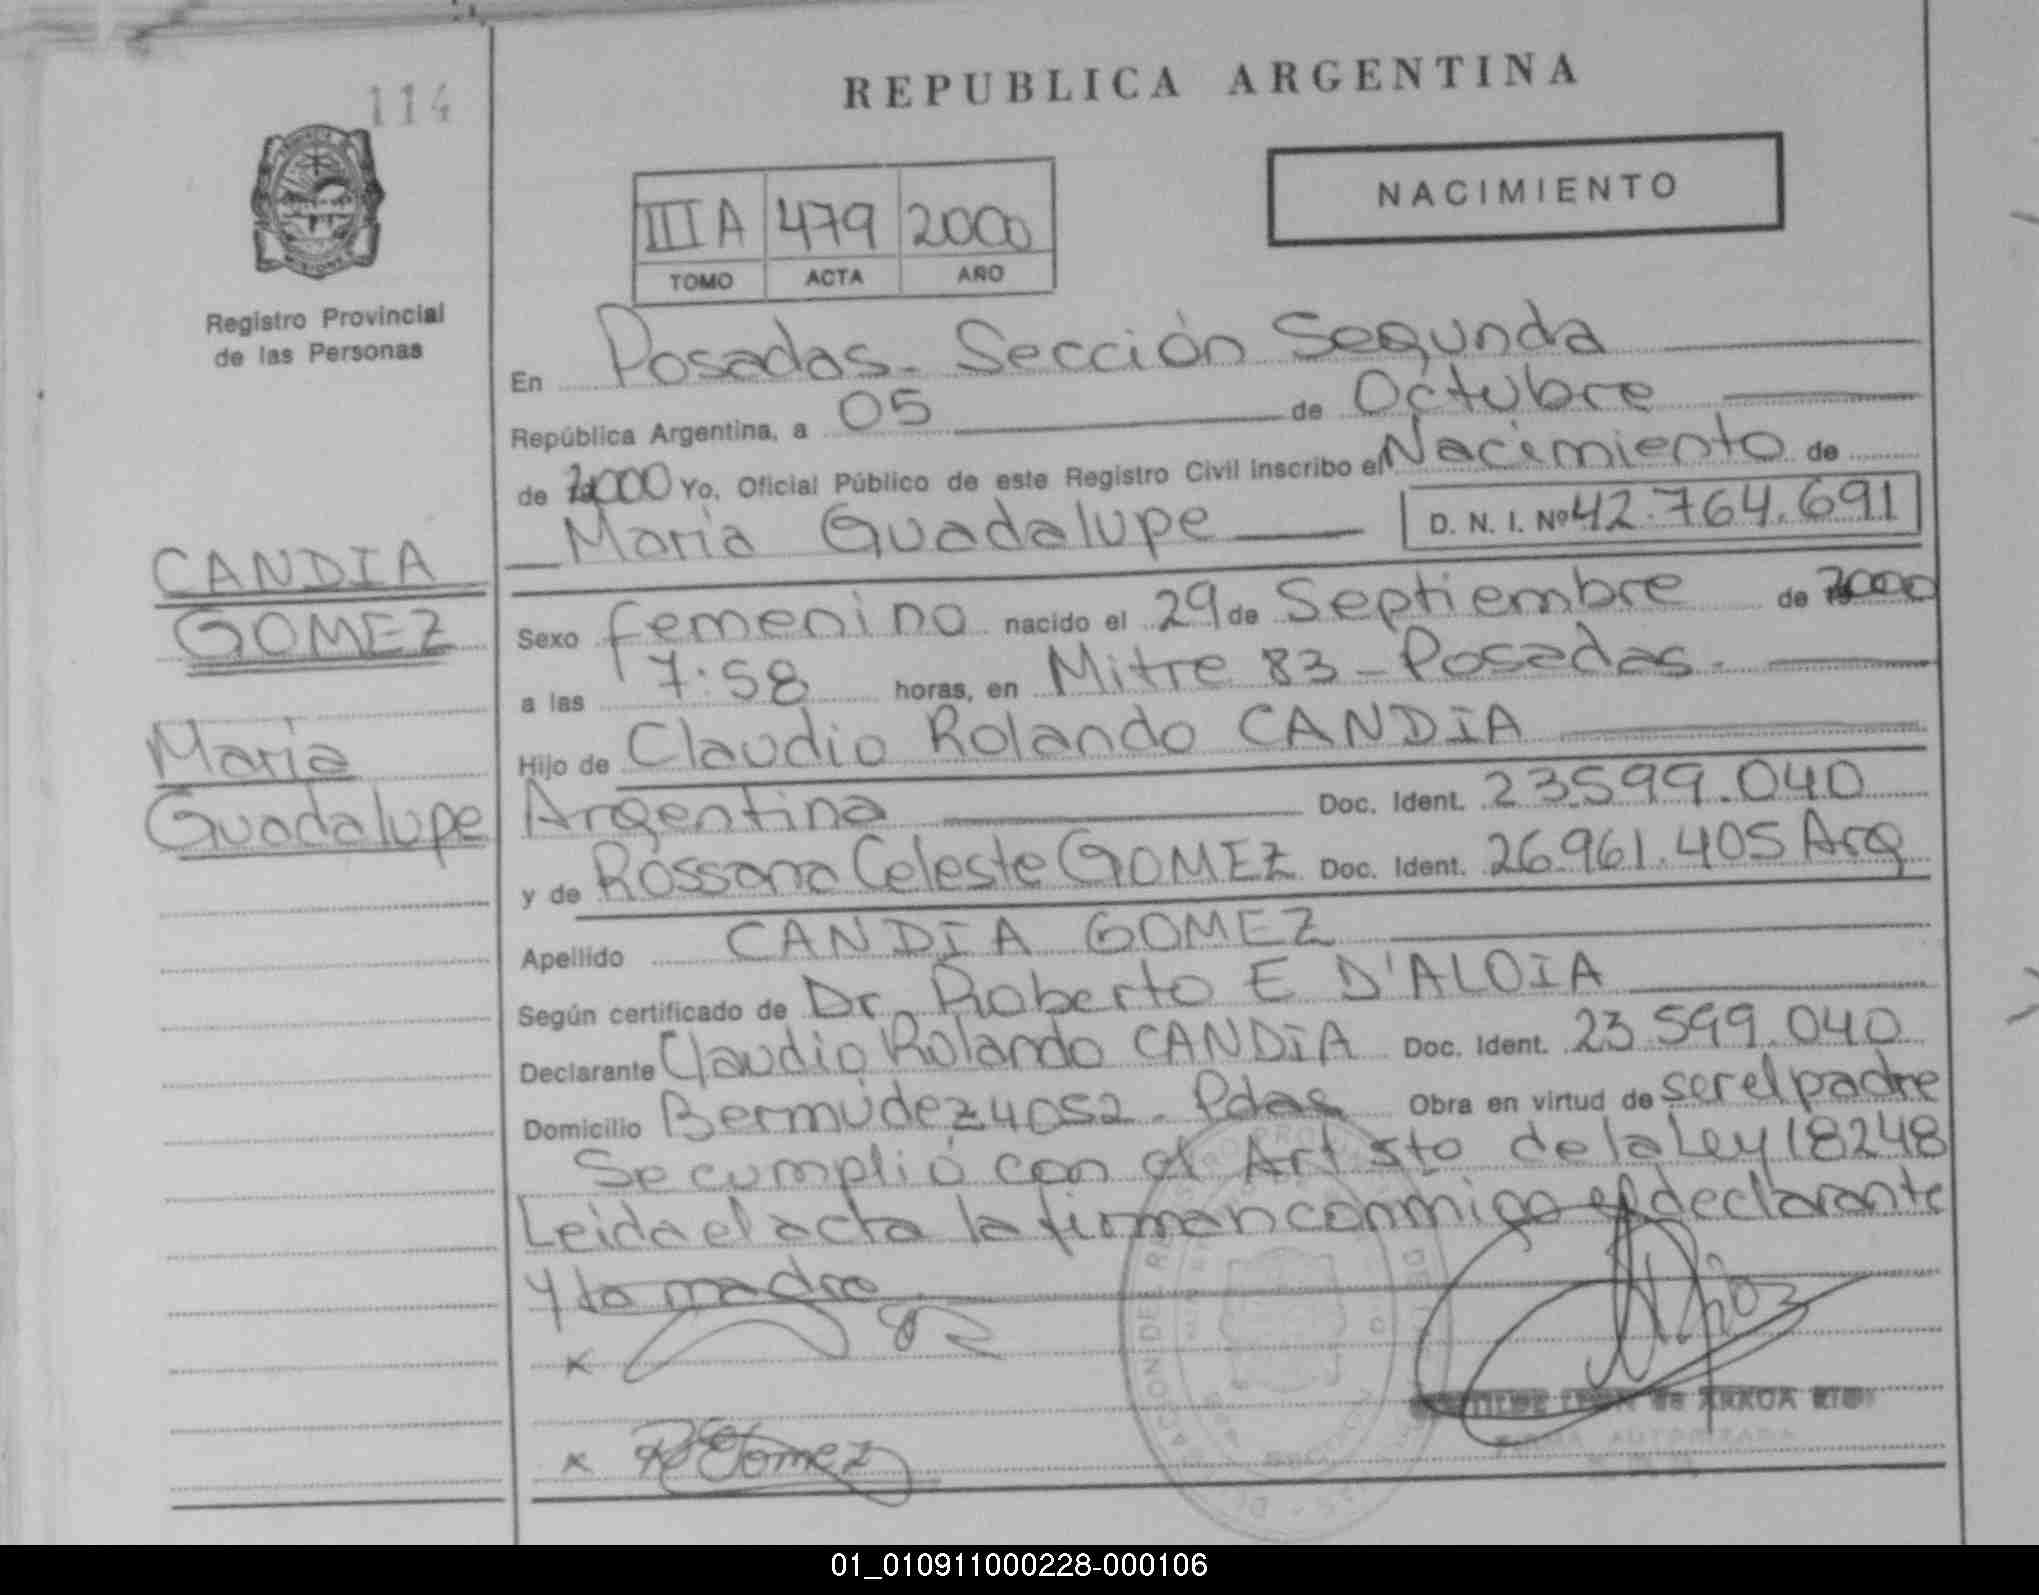 114
REPUBLICA ARGENTINA
NACIMIENTO
IIIA 479 2000
TOMO ACTA AÑO
Registro Provincial
de las Personas
En Posadas. Sección Segunda
República Argentina, a 05 de Octubre
de 2000 Yo, Oficial Público de este Registro Civil inscribo el Nacimiento de
Maria Guadalupe D. N. I. Nº 42.764.691
CANDIA
GOMEZ
Maria
Guadalupe
Sexo femenino nacido el 29 de Septiembre de 2000
a las 7:58 horas, en Mitre 83 - Posadas.
Hijo de Claudio Rolando CANDIA
Argentina Doc. Ident. 23.599.040
y de Rossana Celeste GOMEZ Doc. Ident. 26.961.405 Arg
Apellido CANDIA GOMEZ
Según certificado de Dr. Roberto E D'ALOIA
Declarante Claudio Rolando CANDIA Doc. Ident. 23.599.040
Domicilio Bermúdez 4052 - Pdas Obra en virtud de ser el padre
Se cumplió con el Art 5to de la Ley 18248
Leida el acta la firman conmigo el declarante
y la madre
x
x R Gomez
AUTORIZADA
01_010911000228-000106